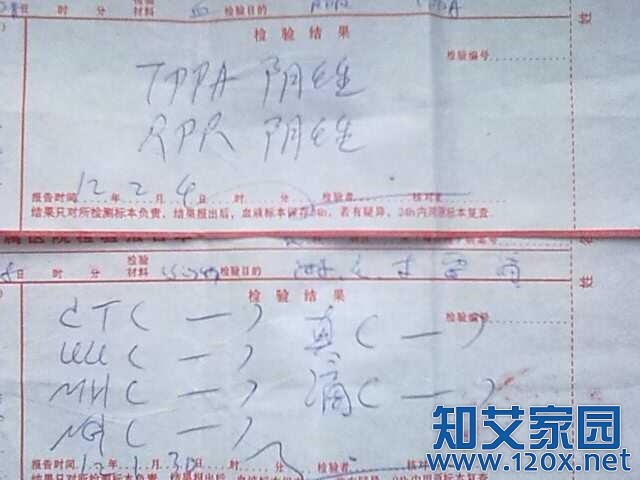 日 时 分 检验材料 血 检验目的
检验结果
检验编号
TPPA 阴性
RPR 阴性
报告时间 12 年 2 月 4 日 时 分 检验者 核对者
结果只对所检测标本负责,结果报出后,血液标本保存24h,若有疑异,24h内河原标本复查。
日 时 分 检验材料 检验目的
检验结果
检验编号
CT(—) 真(—)
UU(—)
MH(—) 滴(—)
NG(—)
报告时间 12 年 1 月 30 日 时 分 检验者 核对
姓
姓
知艾家园
www.120x.net